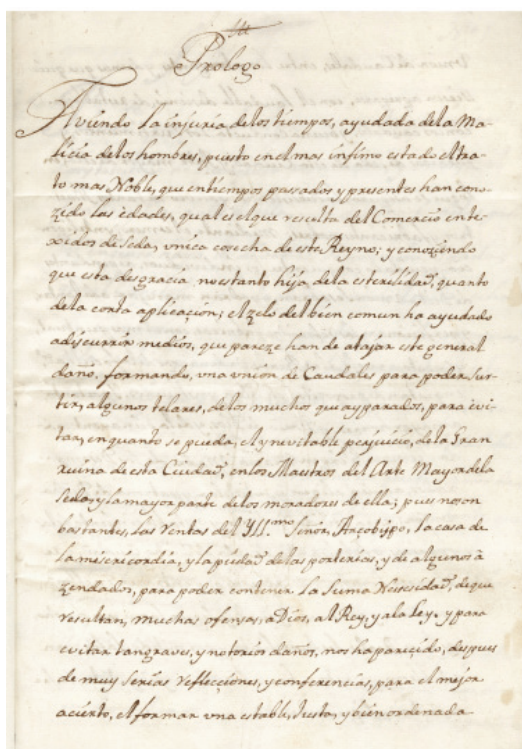 Prologo
Aviendo la injuria delos tiempos, ayudada dela Ma-
licia delos hombres, puesto enel mas infimo estado el tra-
to mas Noble, que entiempos passados y presentes han cono-
zido las edades, qual es el que resulta del Comercio ente-
xidos de Seda, vnica cosecha de este Reyno; y conoziendo
que esta desgracia no es tanto hija dela esterilidad, quanto
dela corta aplicación; el zelo del bien comun ha ayudado
a discurrir medios, que pareze han de atajar este general
daño, formando, vna vnion de Caudales para poder sur-
tir, algunos telares, delos muchos que ay parados, para evi-
tar, en quanto se pueda, el ynevitable perjuicio, dela Gran
ruina de esta Ciudad, enlos Maestros del Arte Mayor dela
Seda, y la mayor parte delos moradores de ella; pues no son
bastantes, las Rentas del Yll.mo Señor, Arzobispo, la casa de
la misericordia, y la piedad delas porterias, y de algunos à
zendados, para poder contener la Suma Nesesidad, de que
resultan, muchas ofensas, a Dios, al Rey, y ala Ley. y para
evitar tan graves, y notorios daños, nos ha parecido, despues
de muy serias reflecciones, y conferencias, para el mejor
acierto, el formar vna estable, Justa, y bien ordenada